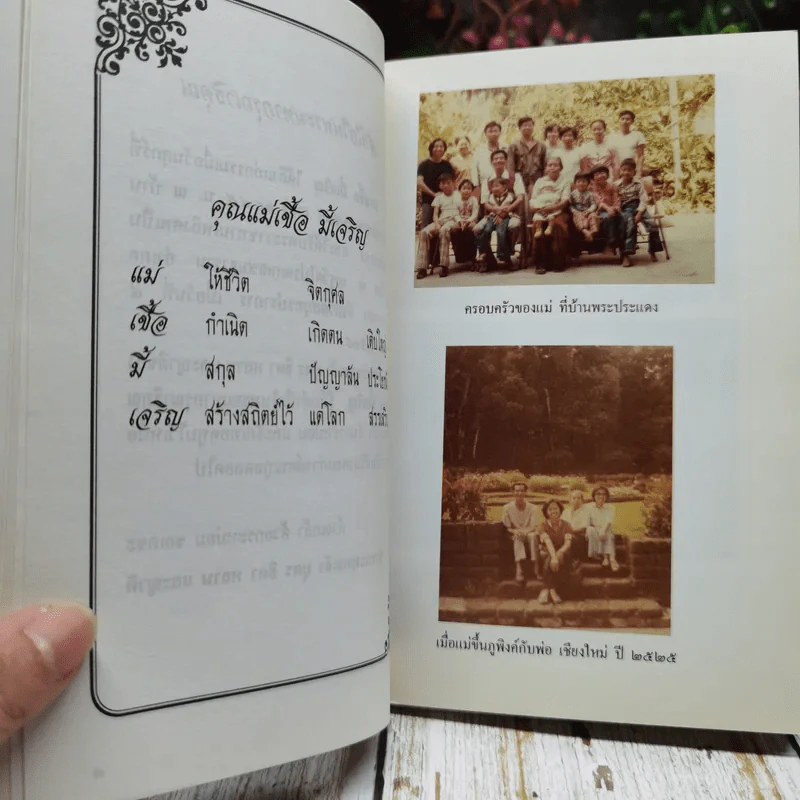 คุณแม่เชื้อ มี้เจริญ
แม่ ให้ชีวิต จิตกุศล
เชื้อ กำเนิด เกิดตน
มี้ สกุล ปัญญาล้น
เจริญ สร้างสถิตย์ไว้ แด่โลก
ครอบครัวของแม่ ที่บ้านพระประแดง
เมื่อแม่ขึ้นภูพิงค์กับพ่อ เชียงใหม่ ปี ๒๕๒๕